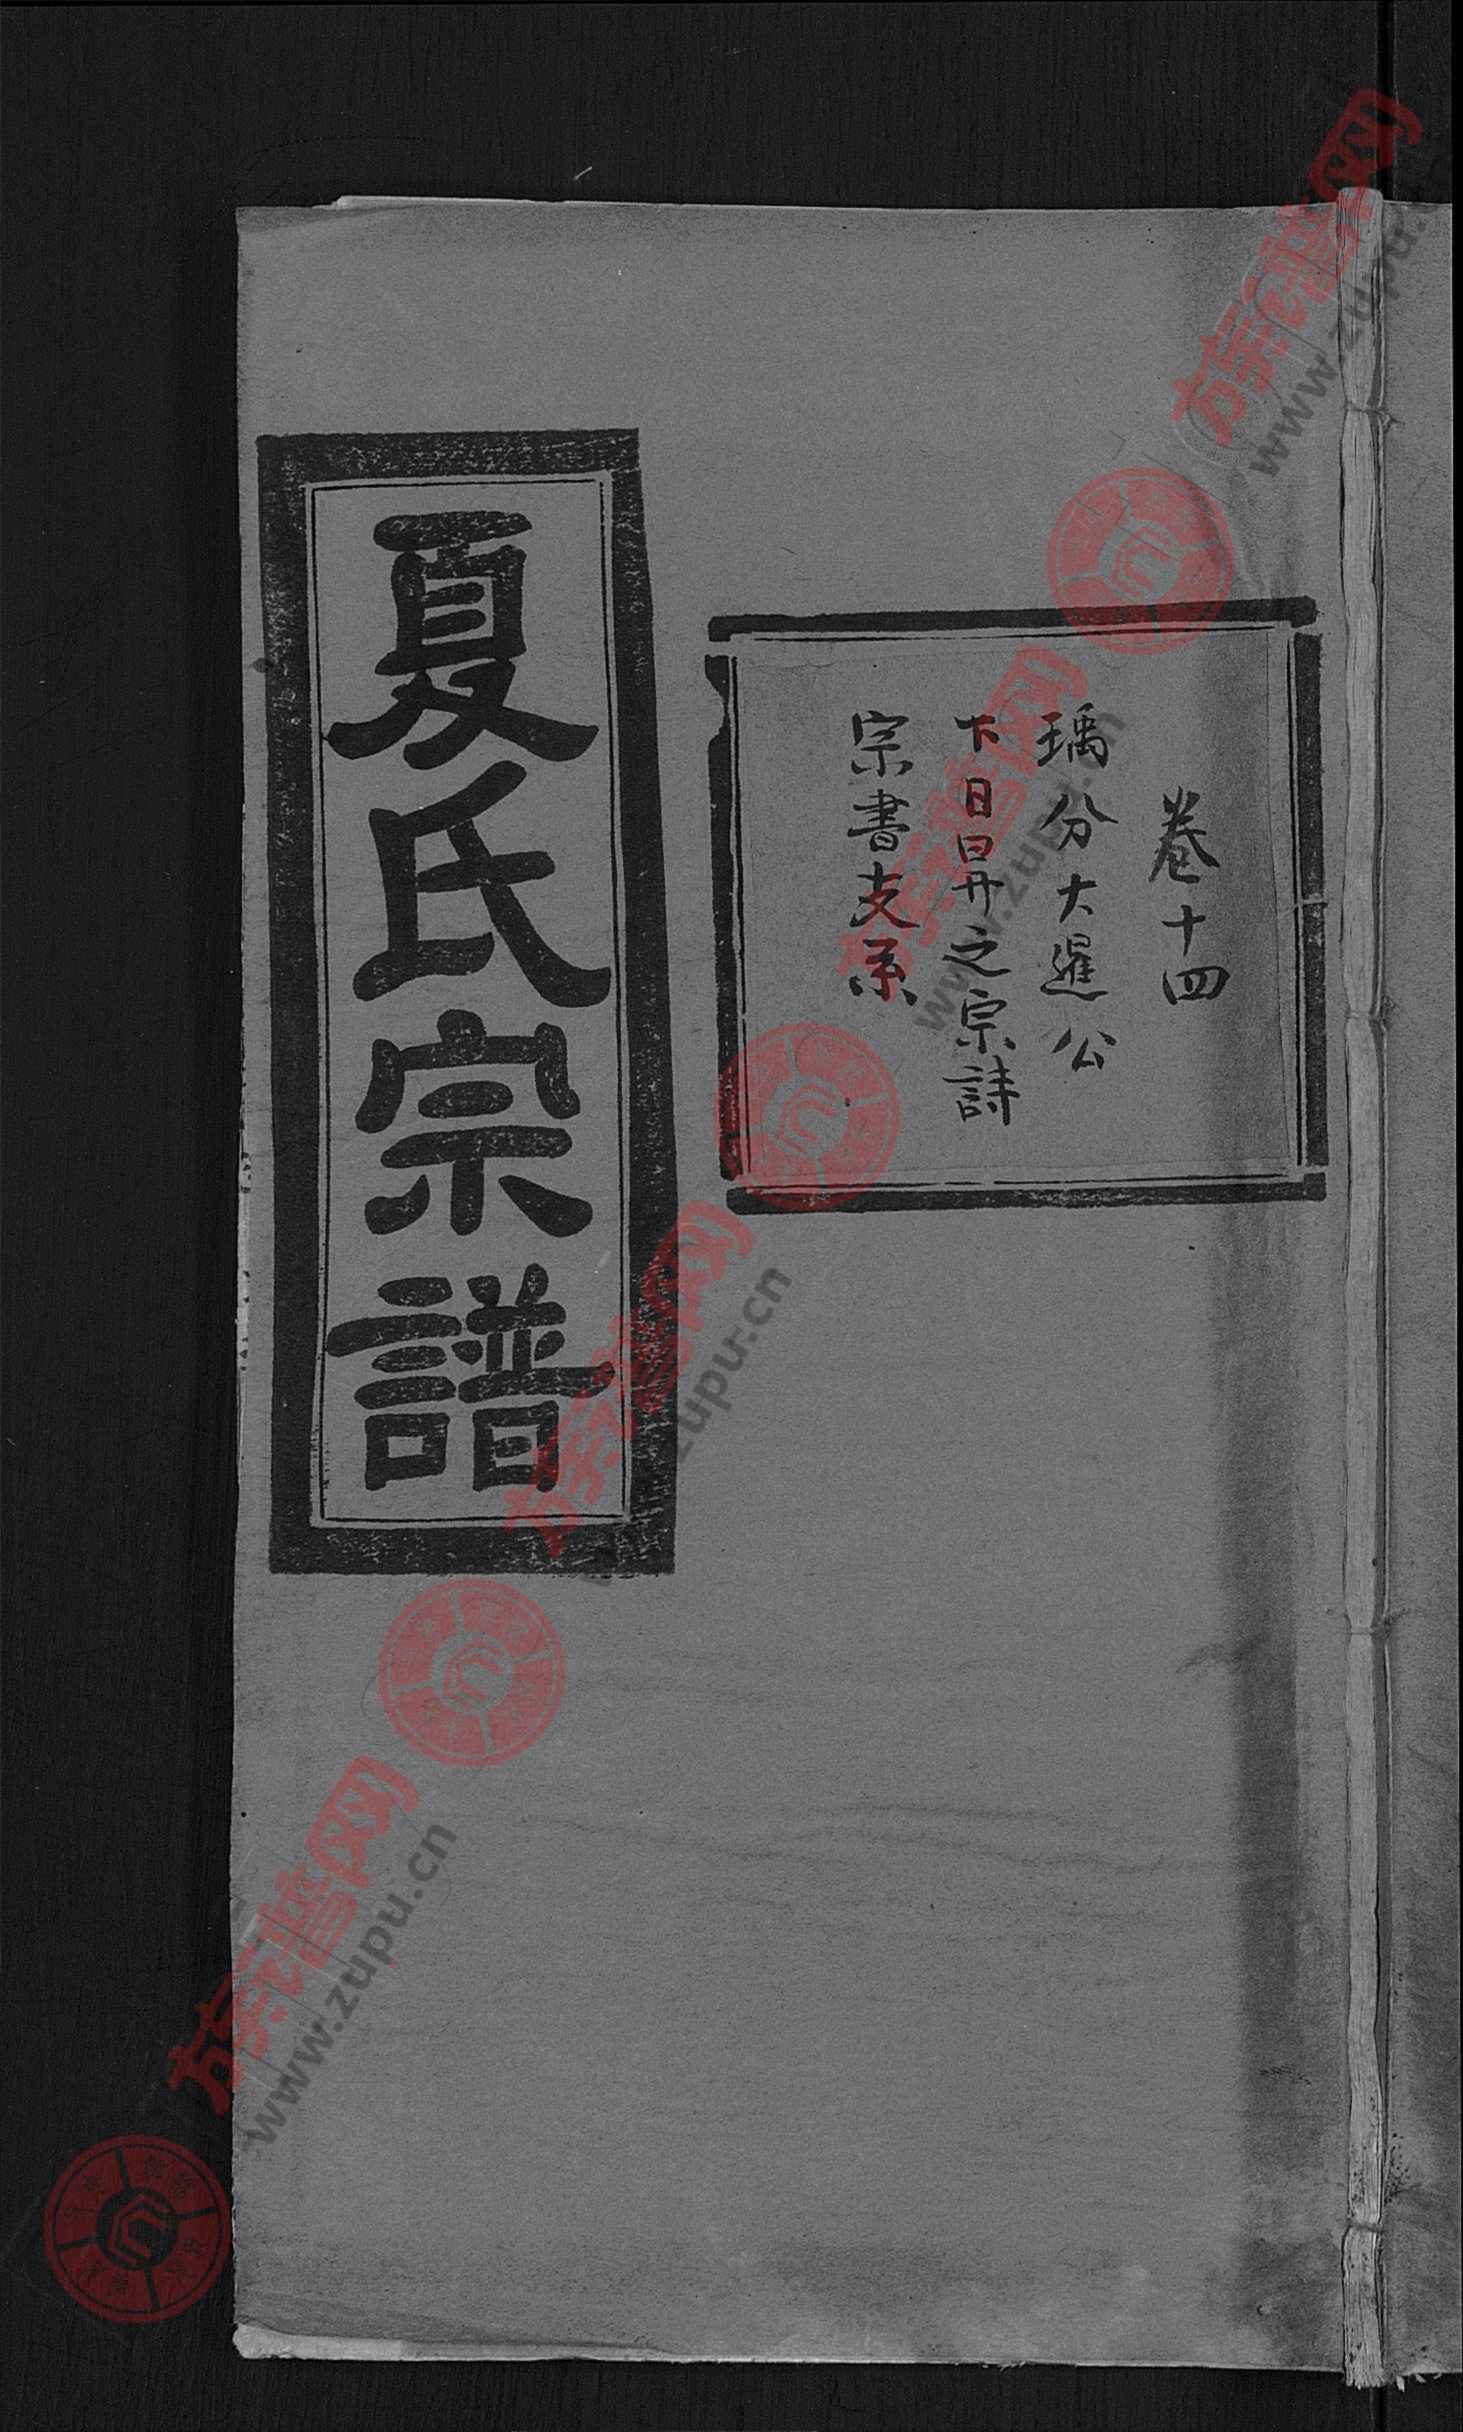 卷十四
瑀分大暹公
下日昇之宗詩
宗書支系
夏氏宗譜
族谱网
www.zupu.cn
族谱网
www.zupu.cn
族谱网
www.zupu.cn
族谱网
www.zupu.cn